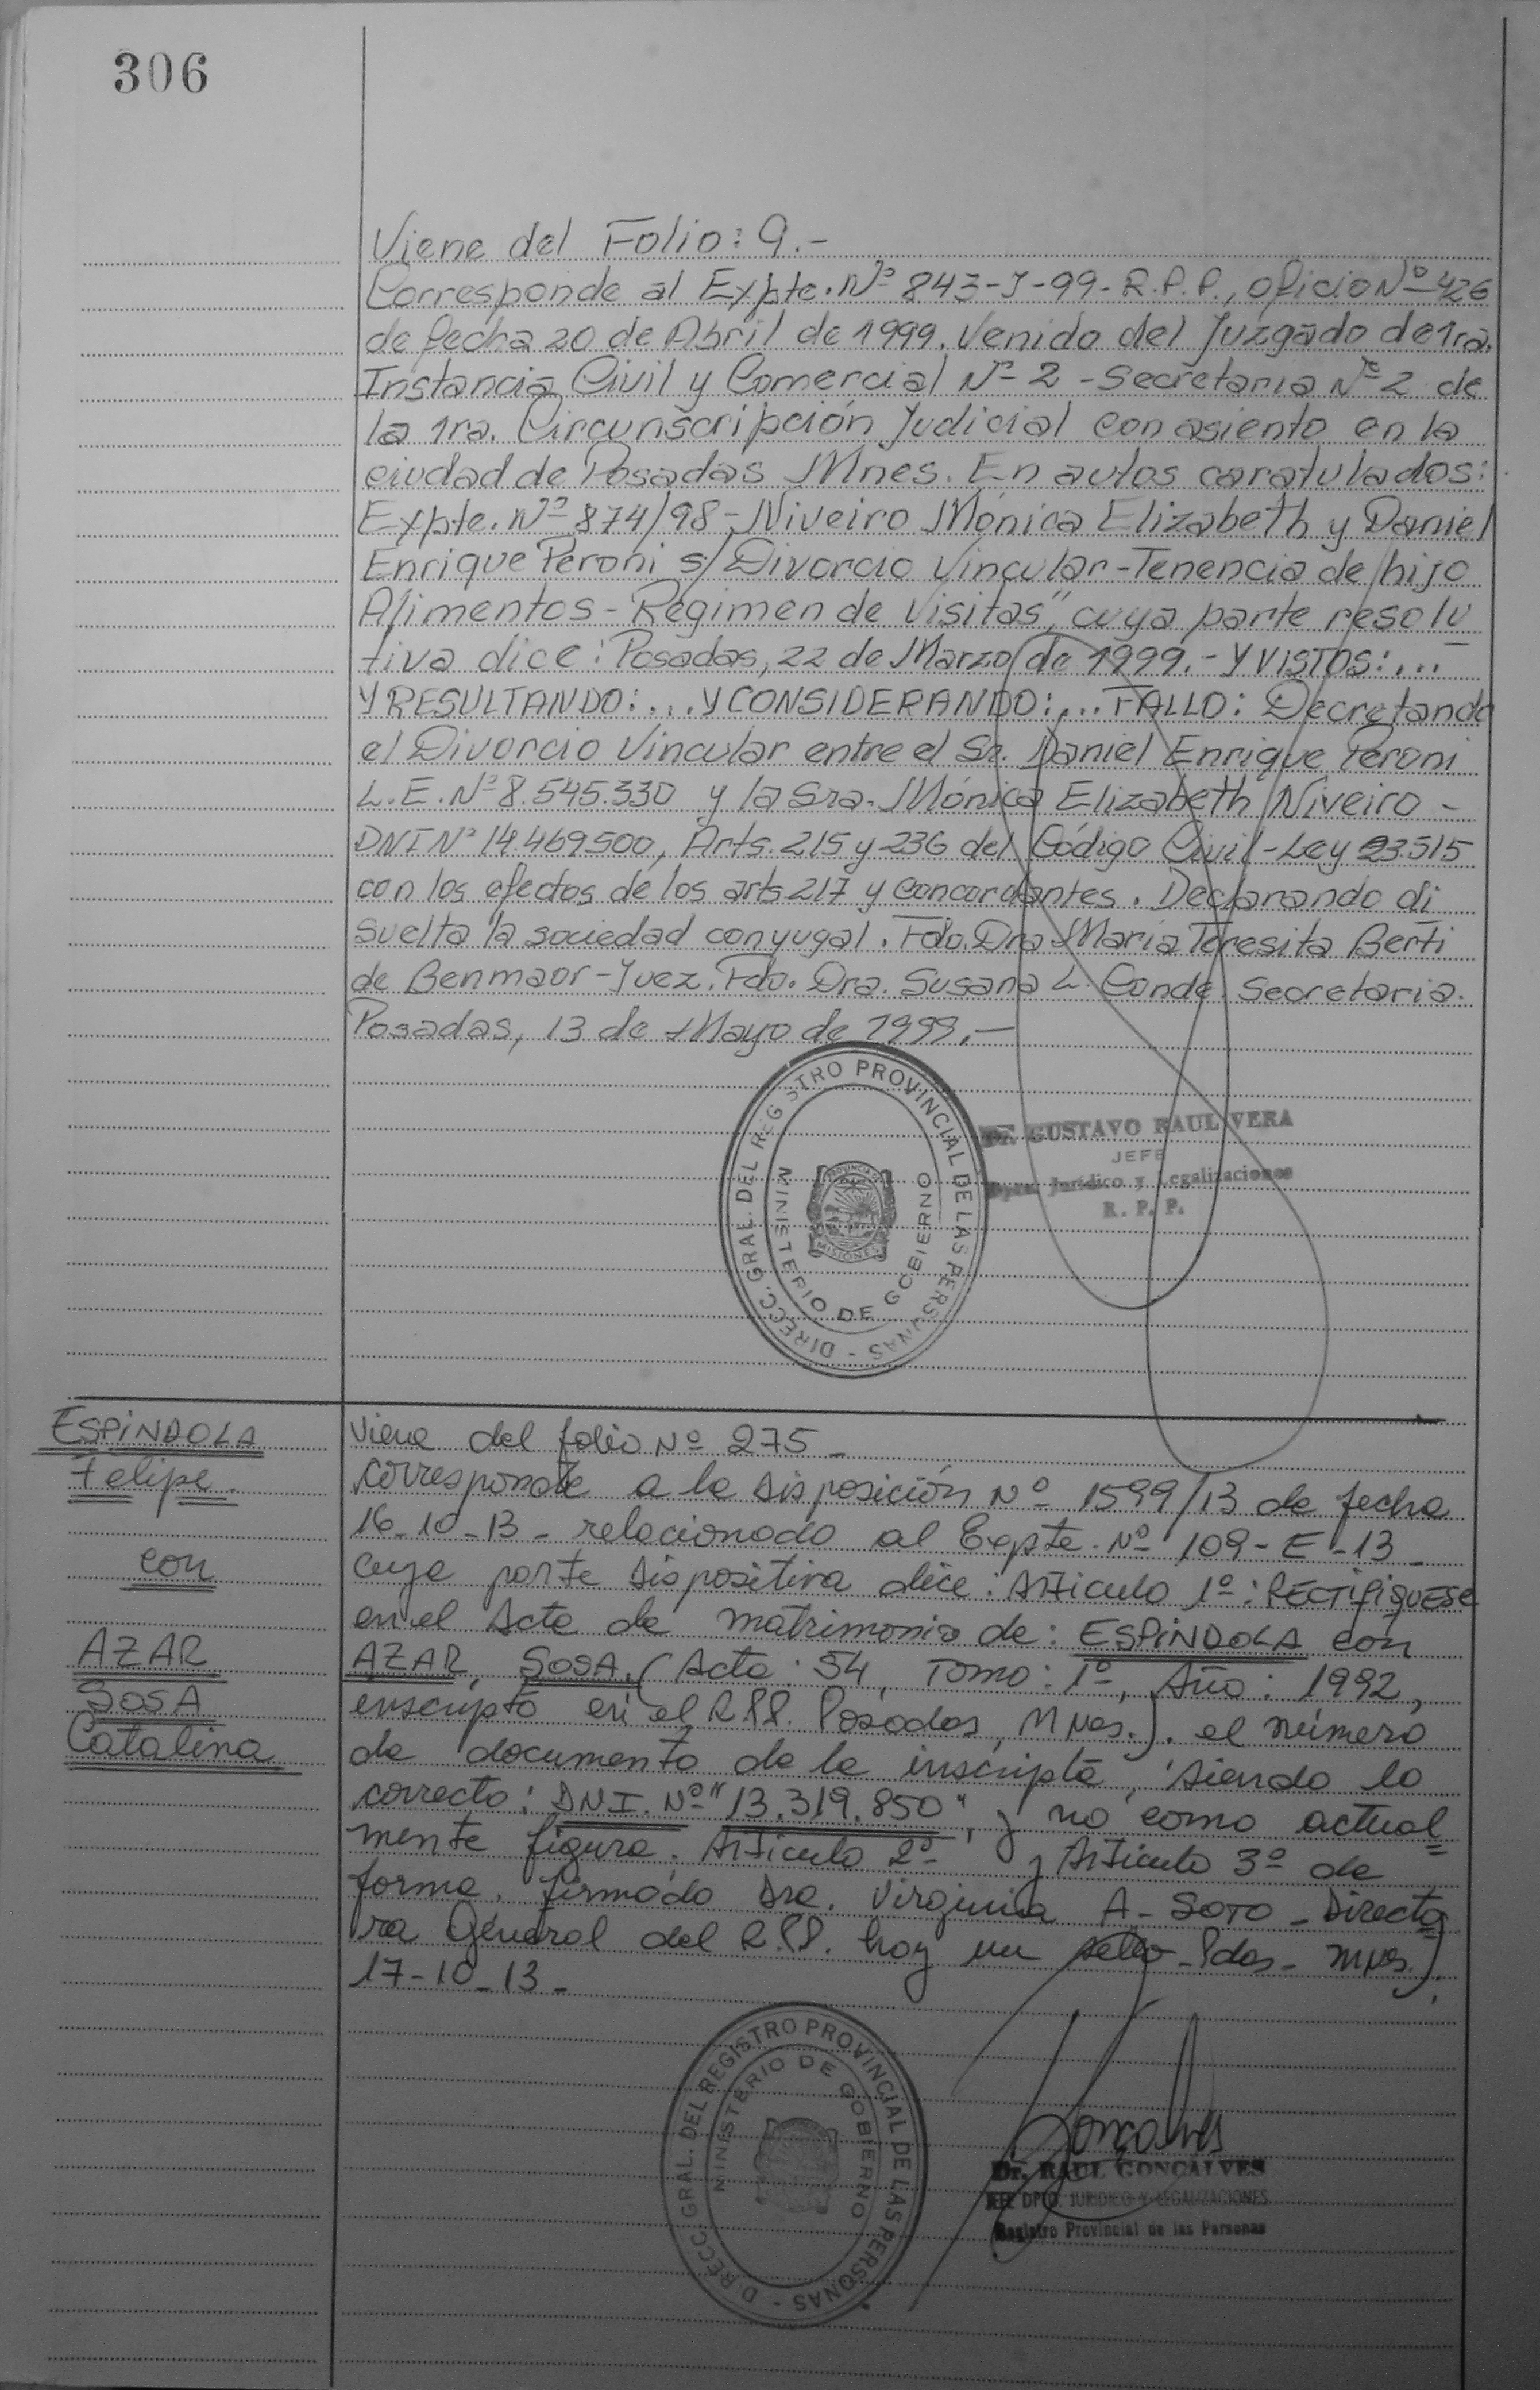 306
Viene del Folio: 9.-
Corresponde al Expte. Nº 843-J-99-R.P.P., oficio Nº 426
de fecha 20 de Abril de 1999. Venido del Juzgado de 1ra.
Instancia Civil y Comercial Nº 2 - Secretaria Nº 2 de
la 1ra. Circunscripción Judicial con asiento en la
ciudad de Posadas Mnes. En autos caratulados:
Expte. Nº 874/98 - Niveiro Mónica Elizabeth y Daniel
Enrique Peroni s/ Divorcio Vincular - Tenencia de hijo
Alimentos - Régimen de Visitas", cuya parte resolu
tiva dice: Posadas, 22 de Marzo de 1999.- Y VISTOS:...
Y RESULTANDO:... Y CONSIDERANDO:... FALLO: Decretando
el Divorcio Vincular entre el Sr. Daniel Enrique Peroni
L.E. Nº 8.545.330 y la Sra. Mónica Elizabeth Niveiro -
DNI Nº 14.469.500, Arts. 215 y 236 del Código Civil - Ley 23.515
con los efectos de los arts 217 y concordantes. Declarando di
suelta la sociedad conyugal. Fdo. Dra María Teresita Berti
de Benmaor - Juez. Fdo. Dra. Susana L. Conde Secretaria.
Posadas, 13 de Mayo de 1999.-
DIRECC. GRAL. DEL REGISTRO PROVINCIAL DE LAS PERSONAS
MINISTERIO DE GOBIERNO
PROVINCIA DE
MISIONES
Dr. GUSTAVO RAUL VERA
JEFE
Dpto. Jurídico y Legalizaciones
R. P. P.
ESPINDOLA
Felipe.
con
AZAR
SOSA
Catalina
Viene del folio Nº 275 -
corresponde a la Disposición Nº 1599/13 de fecha
16-10-13 - relacionado al Expte. Nº 109-E-13 -
cuya parte dispositiva dice: Articulo 1º: RECTIFIQUESE
en el Acta de matrimonio de: ESPINDOLA con
AZAR, SOSA. (Acta: 54, Tomo: 1º, Año: 1992,
inscripto en el R.P.P. Posadas, Mnes.). el número
de documento de la inscripta, siendo lo
correcto: DNI. Nº "13.319.850", y no como actual
mente figura. Articulo 2º y Articulo 3º de
forma. firmado Dra. Virginia A. SOTO - Directo
ra General del R.P.P. hay un sello - Pdas - Mnes.).
17-10-13 -
DIRECC. GRAL. DEL REGISTRO PROVINCIAL DE LAS PERSONAS
MINISTERIO DE GOBIERNO
Goncalves
Dr. RAUL GONCALVES
JEFE DPTO. JURIDICO Y LEGALIZACIONES
Registro Provincial de las Personas